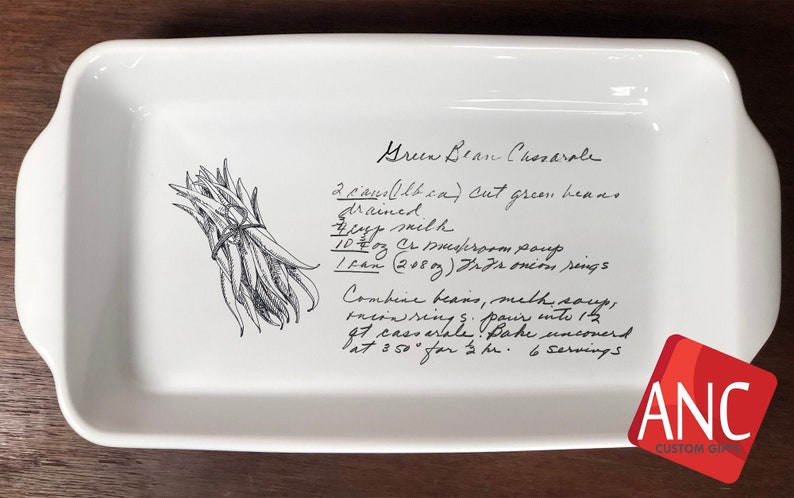 Green Bean Cassarole
2 cans (1 lb ea) cut green beans
drained
¾ cup milk
10 ¾ oz Cr mushroom soup
1 can (2.8 oz) Fr Fr onion rings
Combine beans, milk, soup,
onion rings. pour into 1½
qt cassarole. Bake uncoverd
at 350° for ½ hr. 6 servings
ANC
CUSTOM GIFTS